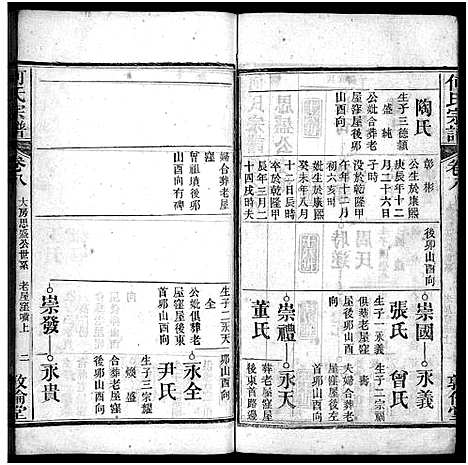 何氏宗譜
卷八
敦倫堂
陶氏
生子三德類
盛純
公妣合葬老
屋窪屋後卯
山酉向
彰彬
公生於康熙
庚辰年十二
月二十六日
子時
後卯山酉向
午年十二月
初六亥時
妣生於康熙
癸未年八月
十二日辰時
卒於乾隆甲
辰年三月二
十四戌時夫
崇國
永義
張氏
曾氏
生子一永義
俱葬老屋窪
屋後卯山酉
向
生子二宗
壽
夫婦合葬老
屋窪屋後卯
山酉向
崇禮
永天
董氏
葬老屋窪屋
後東首卯山
婦合葬老屋
窪
曾祖墳後卯
山酉向有碑
生子二永天
全
公妣俱葬老
屋窪屋後東
首卯山酉向
永全
尹氏
生子三宗耀
煥盛
合葬老屋窪
首卯山酉向
崇發
永貴
何氏宗譜
卷八
大房思盛公世系
老屋窪墳上
二
敦倫堂